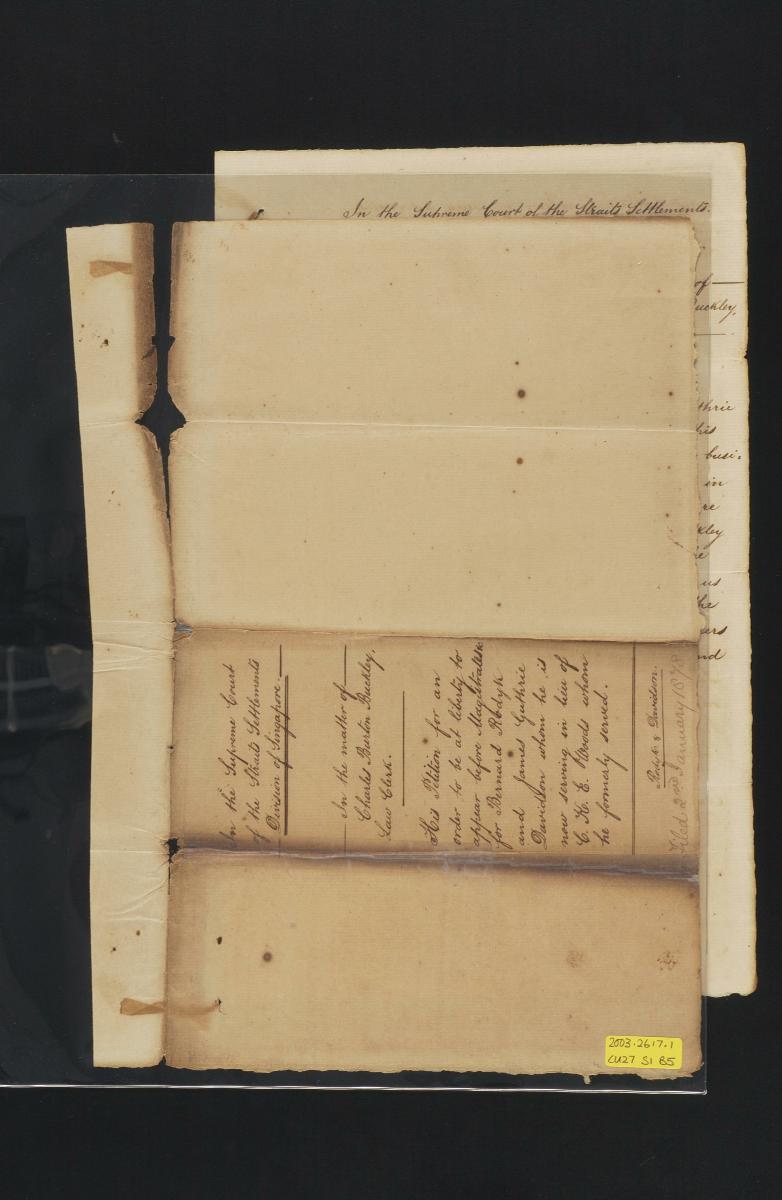 In the Supreme Court of the Straits Settlements.
of
uckley,
thrie
his
busi-
in
re
kley
us
the
ers
nd
In the Supreme Court
of the Straits Settlements
Division of Singapore.
In the matter of
Charles Burton Buckley,
Law Clerk.
His Petition for an
order to be at liberty to
appear before Magistrates
for Bernard Rodyk
and James Guthrie
Davidson whom he is
now serving in lieu of
C. H. E. Woods whom
he formerly served.
Rodyk & Davidson.
Filed 2nd January 187
2003.2617.1
CU27 S1 B5